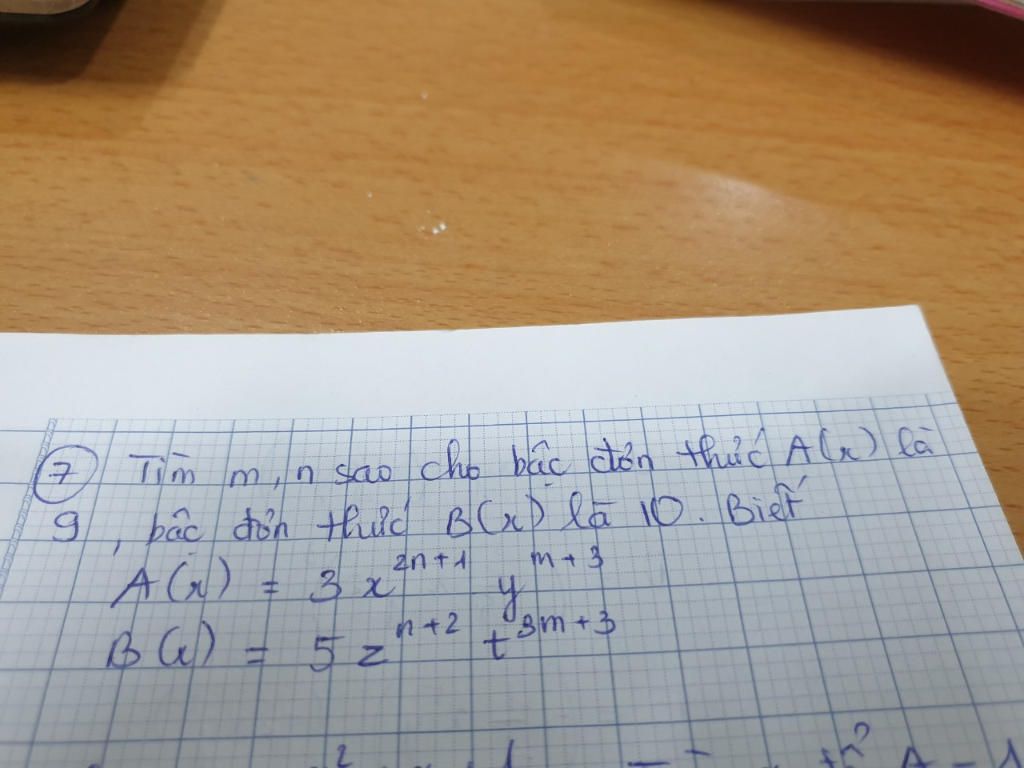 7 Tìm m, n sao cho bậc đơn thức A(x) là
9, bậc đơn thức B(x) là 10. Biết
A(x) = 3x^{2n+1} y^{m+3}
B(x) = 5z^{n+2} t^{3m+3}